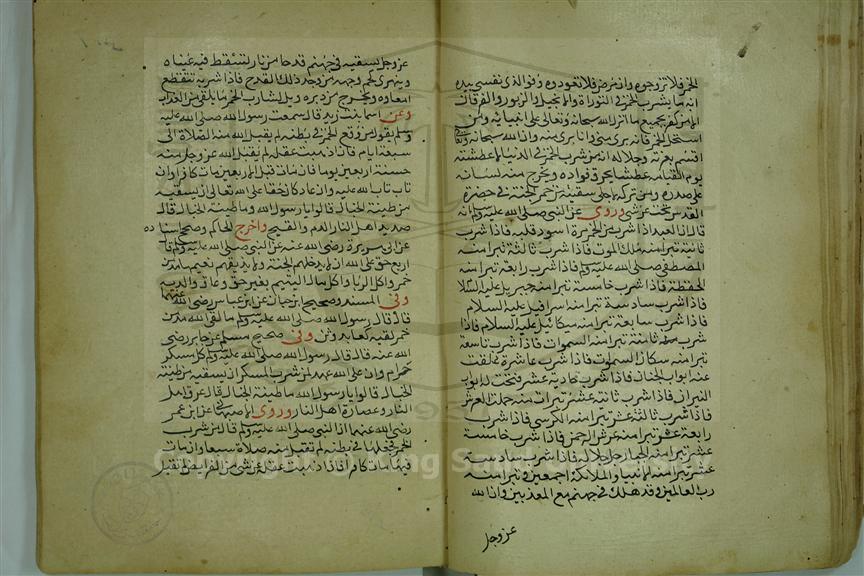 الخمر فلا تزوجوه وان مرض فلا تعودوه فوالذي نفسي بيده
انه ما يشرب الخمر في التوراة والانجيل والزبور والفرقان
الا من كفر بجميع ما انزل الله سبحانه وتعالى على انبيائه ومن
استحل الخمر فانه بري مني وانا بري منه وان الله سبحانه وتعالى
اقسم بعزته وجلاله ان من شرب الخمر في الدنيا الا عطشته
يوم القيامة عطشا يحرق فواده ويخرج منه لسانه
على صدره ومن تركه لاجلي سقيته من خمر الجنة في حضرة
القدس تحت عرشي وروي عن النبي صلى الله عليه وسلم انه
قال ان العبد اذا شرب من الخمر مرة اسود قلبه فاذا شرب
ثانية تبرا منه ملك الموت فاذا شرب ثالثة تبرا منه
المصطفى صلى الله عليه وسلم فاذا شرب رابعة تبرا منه
الحفظة فاذا شرب خامسة تبرا منه جبريل عليه السلام
فاذا شرب سادسة تبرا منه اسرافيل عليه السلام
فاذا شرب سابعة تبرا منه ميكائيل عليه السلام فاذا
شرب ثامنة تبرا منه السموات فاذا شرب تاسعة
تبرا منه سكان السموات فاذا شرب عاشرة غلقت
عنه ابواب الجنان فاذا شرب حادية عشر فتحت له ابواب
النيران فاذا شرب ثانية عشر تبرات منه حملة العرش
فاذا شرب ثالثة عشر تبرا منه الكرسي فاذا شرب
رابعة عشر تبرا منه عرش الرحمن فاذا شرب خامسة
عشر تبرا منه الجبار جل جلاله فاذا شرب سادسة
عشر تبرا منه الانبيا والملائكة اجمعين وتبرا منه
رب العالمين وقد هلك في جهنم مع المعذبين وان الله
عز وجل
عز وجل يسقيه في جهنم قدحا من نار تسقط فيه عيناه
وينهري لحم وجهه من وجه ذلك القدح فاذا شربه تتقطع
امعاوه وتخرج من دبره ويل لشارب الخمر ما يلقى من العذاب
وعن اسما بنت زيد قال سمعت رسول الله صلى الله عليه
وسلم يقول من وقع الخمر في بطنه لم يقبل الله منه الصلاة الى
سبعة ايام فان اذهبت عقله لم يقبل الله عز وجل منه
حسنة اربعين يوما فان مات قبل الاربعين مات كافرا وان
تاب تاب الله عليه وان عاد كان حقا على الله تعالى ان يسقيه
من طينة الخبال قالوا يا رسول الله وما طينة الخبال قال
صديد اهل النار الدم والقيح واخرج الحاكم وصحح اسناده
عن ابي هريرة رضي الله عنه عن النبي صلى الله عليه وسلم قال
اربع حق على الله ان لا يدخلهم الجنة ولا يذيقهم نعيمها مدمن
خمر واكل الربا واكل مال اليتيم بغير حق وعاق والديه
وفي المسند وصحيح ابن حبان عن ابن عباس رضي الله عنهما
قال قال رسول الله صلى الله عليه وسلم من لقي الله مدمن
خمر لقيه كعابد وثن وفي صحيح مسلم عن جابر رضي
الله عنه قال قال رسول الله صلى الله عليه وسلم كل مسكر
حرام وان على الله عهد لمن شرب المسكر ان يسقيه من طينة
الخبال قالوا يا رسول الله ما طينة الخبال قال عرق اهل
النار وعصارة اهل النار وروى الاصبهاني عن ابن عمر
رضي الله عنهما ان النبي صلى الله عليه وسلم قال من شرب
الخمر فجعلها في بطنه لم تقبل منه صلاة سبعا وان مات
فيها مات كافرا فاذا اذهبت عقله عن شي من الفرايض لم تقبل